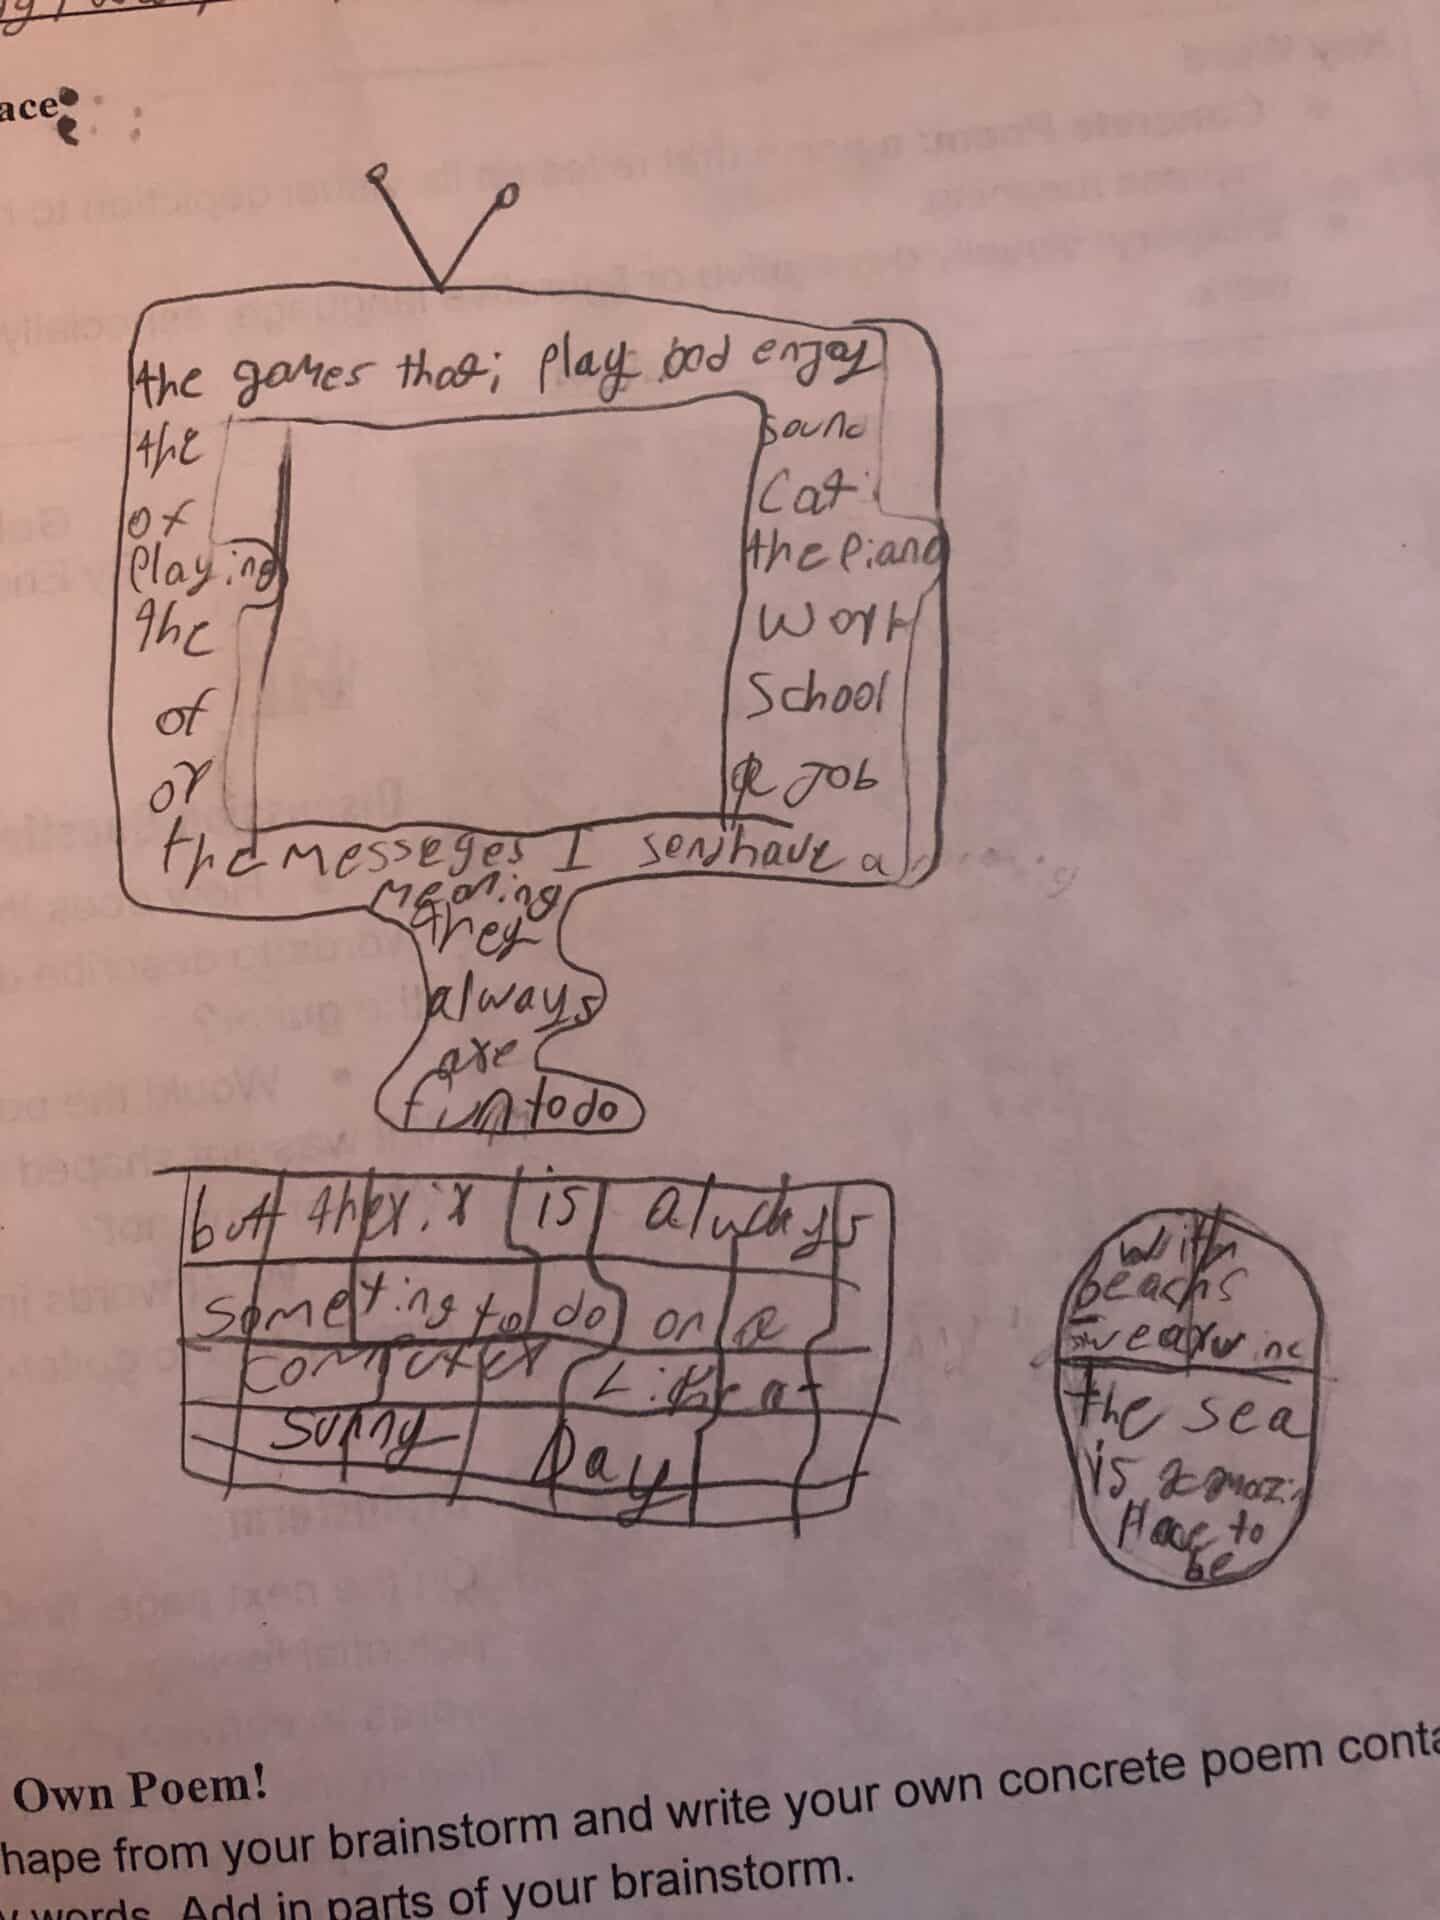 ace:
the games that i play and enjoy
the sound
of Cat
Playing the Piano
the work
of School
or a Job
the messeges I send have a
meaning
they
always
are
fun to do
but their is aluckys
someting to do on a
computer Like at
sunny Day
with
beachs
the sea
is amazi
Place to
be
Own Poem!
hape from your brainstorm and write your own concrete poem conta
words. Add in parts of your brainstorm.